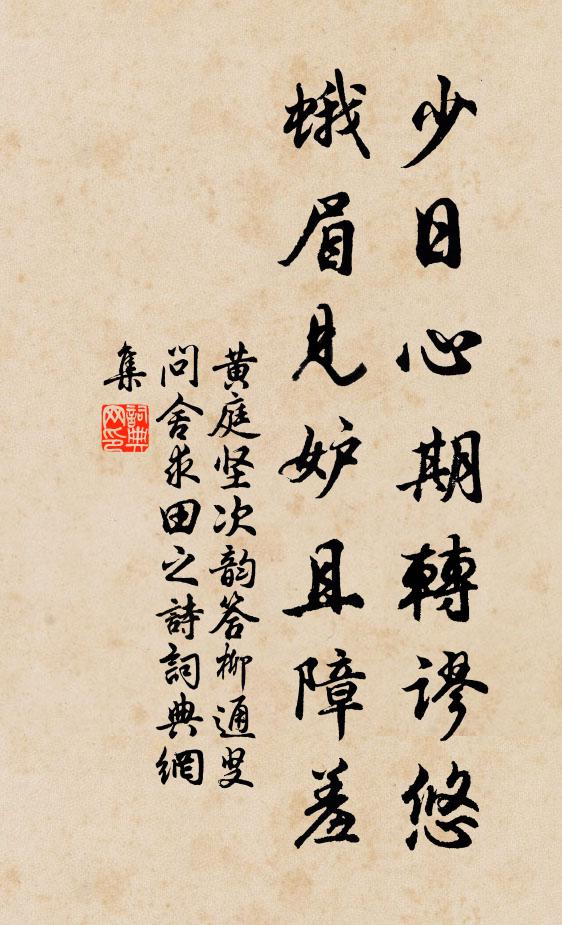 少日心期轉謬悠
蛾眉見妒且障羞
黄庭坚次韵答柳通叟
問舍求田之詩詞典網
集
詞典
网印